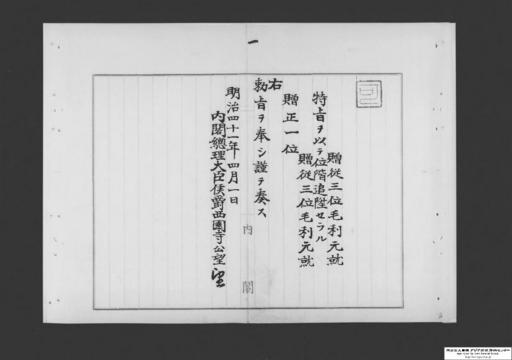 贈従三位毛利元就
特旨ヲ以テ位階追陞セラル
贈従三位毛利元就
贈正一位
右
勅旨ヲ奉シ謹テ奏ス
明治四十一年四月一日
内閣總理大臣侯爵西園寺公望
内閣